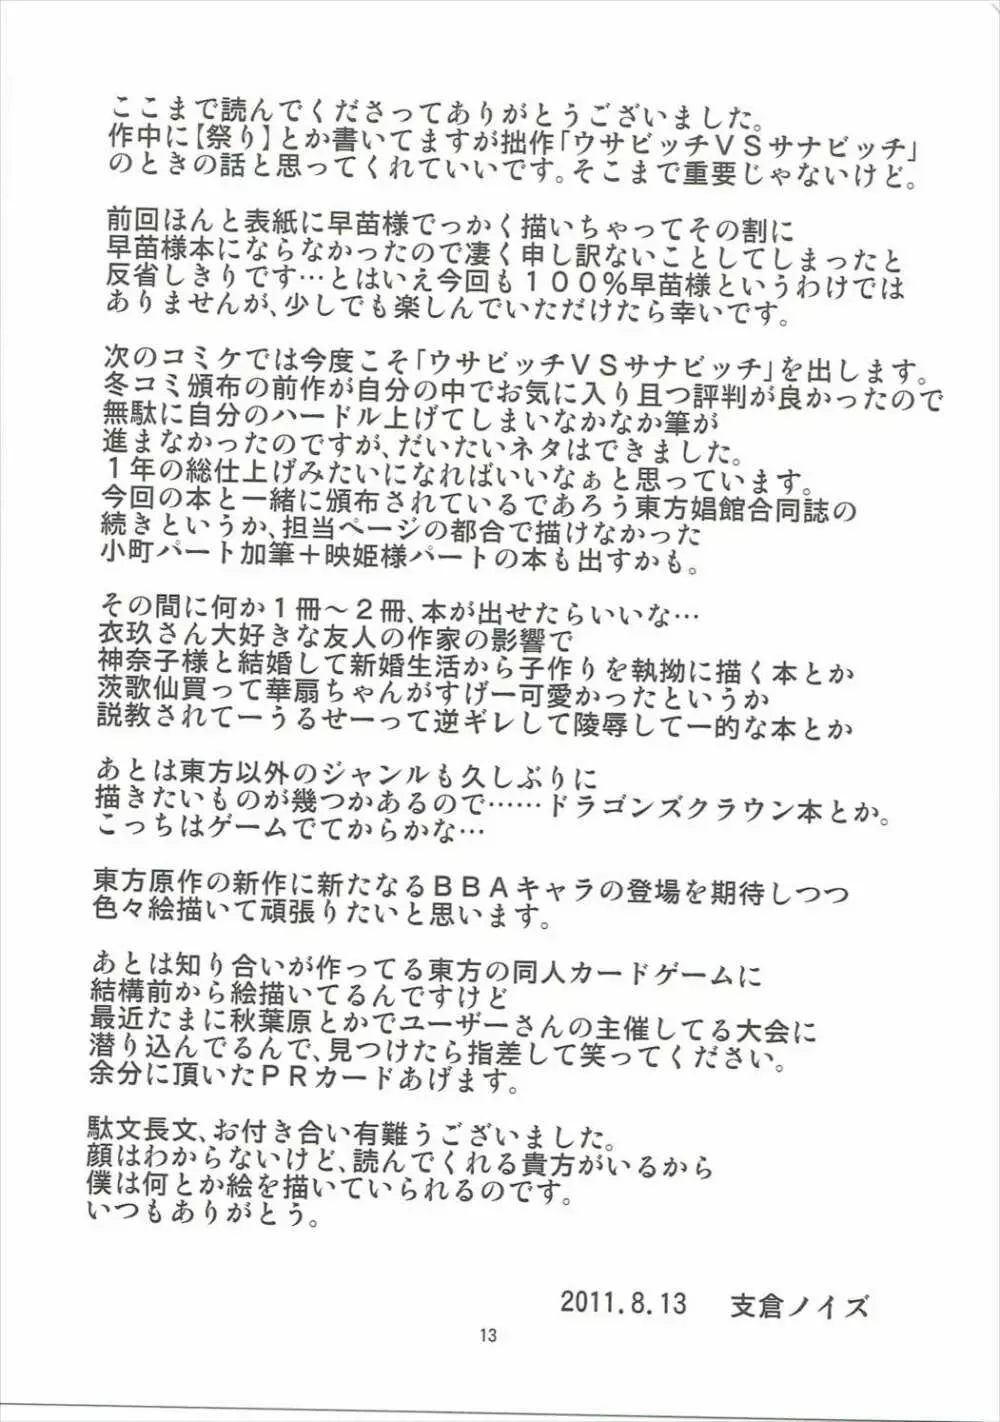 ここまで読んでくださってありがとうございました。
作中に【祭り】とか書いてますが拙作「ウサビッチＶＳサナビッチ」
のときの話と思ってくれていいです。そこまで重要じゃないけど。
前回ほんと表紙に早苗様でっかく描いちゃってその割に
早苗様本にならなかったので凄く申し訳ないことしてしまったと
反省しきりです…とはいえ今回も１００％早苗様というわけでは
ありませんが、少しでも楽しんでいただけたら幸いです。
次のコミケでは今度こそ「ウサビッチＶＳサナビッチ」を出します。
冬コミ頒布の前作が自分の中でお気に入り且つ評判が良かったので
無駄に自分のハードル上げてしまいなかなか筆が
進まなかったのですが、だいたいネタはできました。
１年の総仕上げみたいになればいいなぁと思っています。
今回の本と一緒に頒布されているであろう東方娼館合同誌の
続きというか、担当ページの都合で描けなかった
小町パート加筆＋映姫様パートの本も出すかも。
その間に何か１冊～２冊、本が出せたらいいな…
衣玖さん大好きな友人の作家の影響で
神奈子様と結婚して新婚生活から子作りを執拗に描く本とか
茨歌仙買って華扇ちゃんがすげー可愛かったというか
説教されてーうるせーって逆ギレして陵辱してー的な本とか
あとは東方以外のジャンルも久しぶりに
描きたいものが幾つかあるので……ドラゴンズクラウン本とか。
こっちはゲームでてからかな…
東方原作の新作に新たなるＢＢＡキャラの登場を期待しつつ
色々絵描いて頑張りたいと思います。
あとは知り合いが作ってる東方の同人カードゲームに
結構前から絵描いてるんですけど
最近たまに秋葉原とかでユーザーさんの主催してる大会に
潜り込んでるんで、見つけたら指差して笑ってください。
余分に頂いたＰＲカードあげます。
駄文長文、お付き合い有難うございました。
顔はわからないけど、読んでくれる貴方がいるから
僕は何とか絵を描いていられるのです。
いつもありがとう。
2011.8.13　支倉ノイズ
13